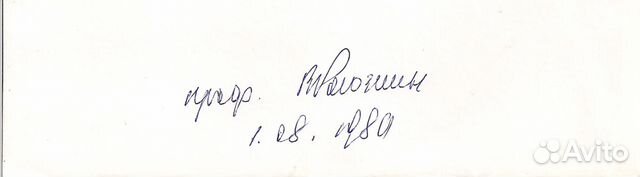 проф.
1.08.1980
Avito